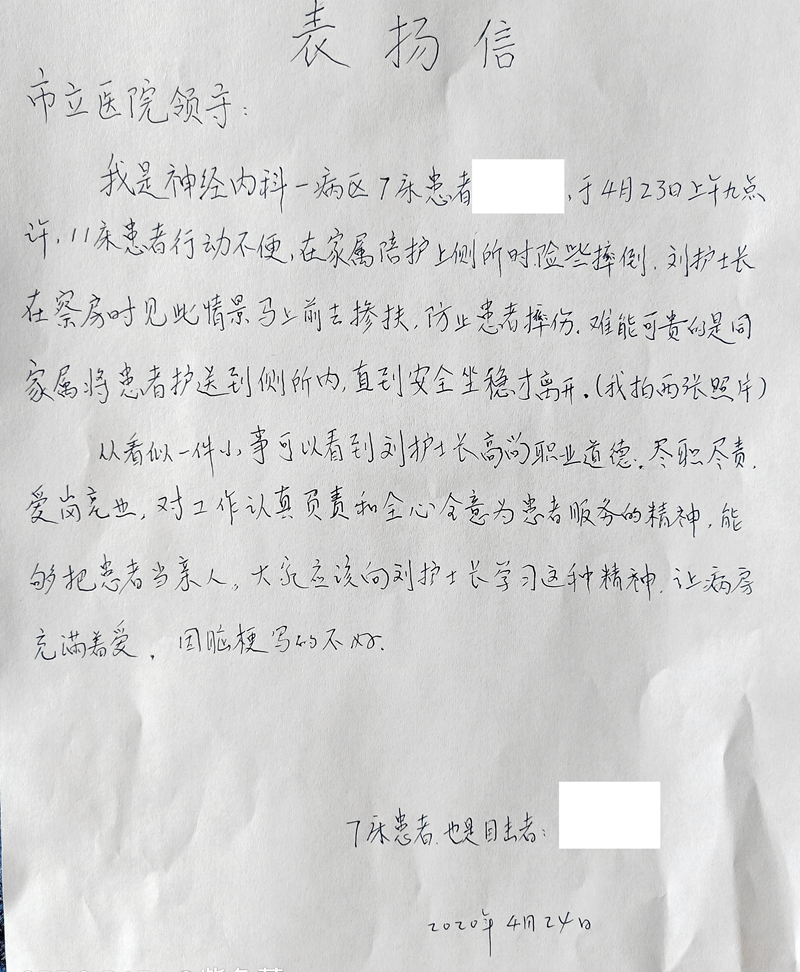 表扬信
市立医院领导:
我是神经内科一病区7床患者,于4月23日上午九点
许,11床患者行动不便,在家属陪护上侧所时险些摔倒.刘护士长
在察房时见此情景马上前去掺扶,防止患者摔伤.难能可贵的是同
家属将患者护送到侧所内,直到安全坐稳才离开.(我拍两张照片)
从看似一件小事可以看到刘护士长高尚职业道德.尽职尽责.
爱岗竞业,对工作认真负责和全心全意为患者服务的精神,能
够把患者当亲人。大家应该向刘护士长学习这种精神.让病房
充满着爱。因脑梗写的不好.
7床患者.也是目击者:
2020年4月24日